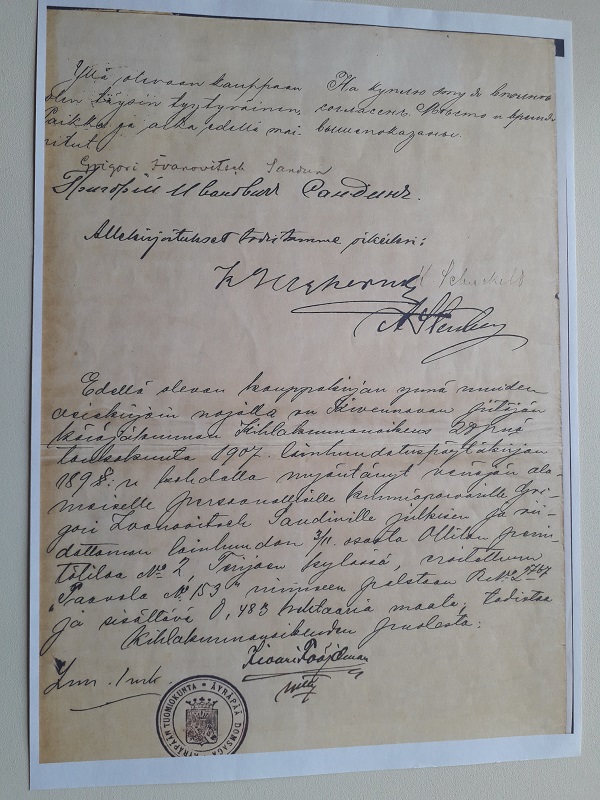 Yllä olevaan kauppaan
olen täysin tyytyväinen,
Paikka ja aika edellä mai-
nitut
На куплю
согласенъ. Мѣсто и время
вышепоказаны.
Grigori Ivanovitsch Sandin
Григорій Ивановичъ Сандинъ.
Allekirjoitukset todistamme oikeiksi:
A Stenberg
Edellä olevan kauppakirjan ynnä muiden
asiakirjain nojalla on Kivennavan pitäjän
käräjäkunnan Kihlakunnanoikeus 27 p:nä
toukokuuta 1907. lainhuudatuspöytäkirjan
1898 § kohdalla myöntänyt venäjän ala-
maiselle persoonalliselle kunniaporvarille Gri-
gori Ivanovitsch Sandinille julkisen ja rii-
dattoman lainhuudon osasta Ollilan perin-
tötilaa No 2, Terijoen kylässä, eroitettuun
"Paavola No 153" nimiseen palstaan
ja sisältävä 0,483 hehtaaria maata, todistaa
Kihlakunnanoikeuden puolesta:
ÄYRÄPÄÄN TUOMIOKUNTA • ÄYRÄPÄÄ DOMSAGA